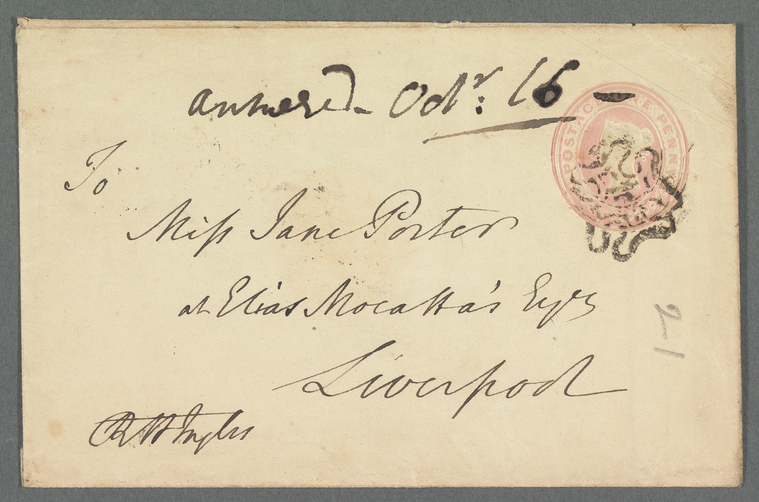 Answered - Octr: 16 -
POSTAGE ONE PENNY
To
Miss Jane Porter
at Elias Mocatta's Esqre
Liverpool
R H Inglis
2-1